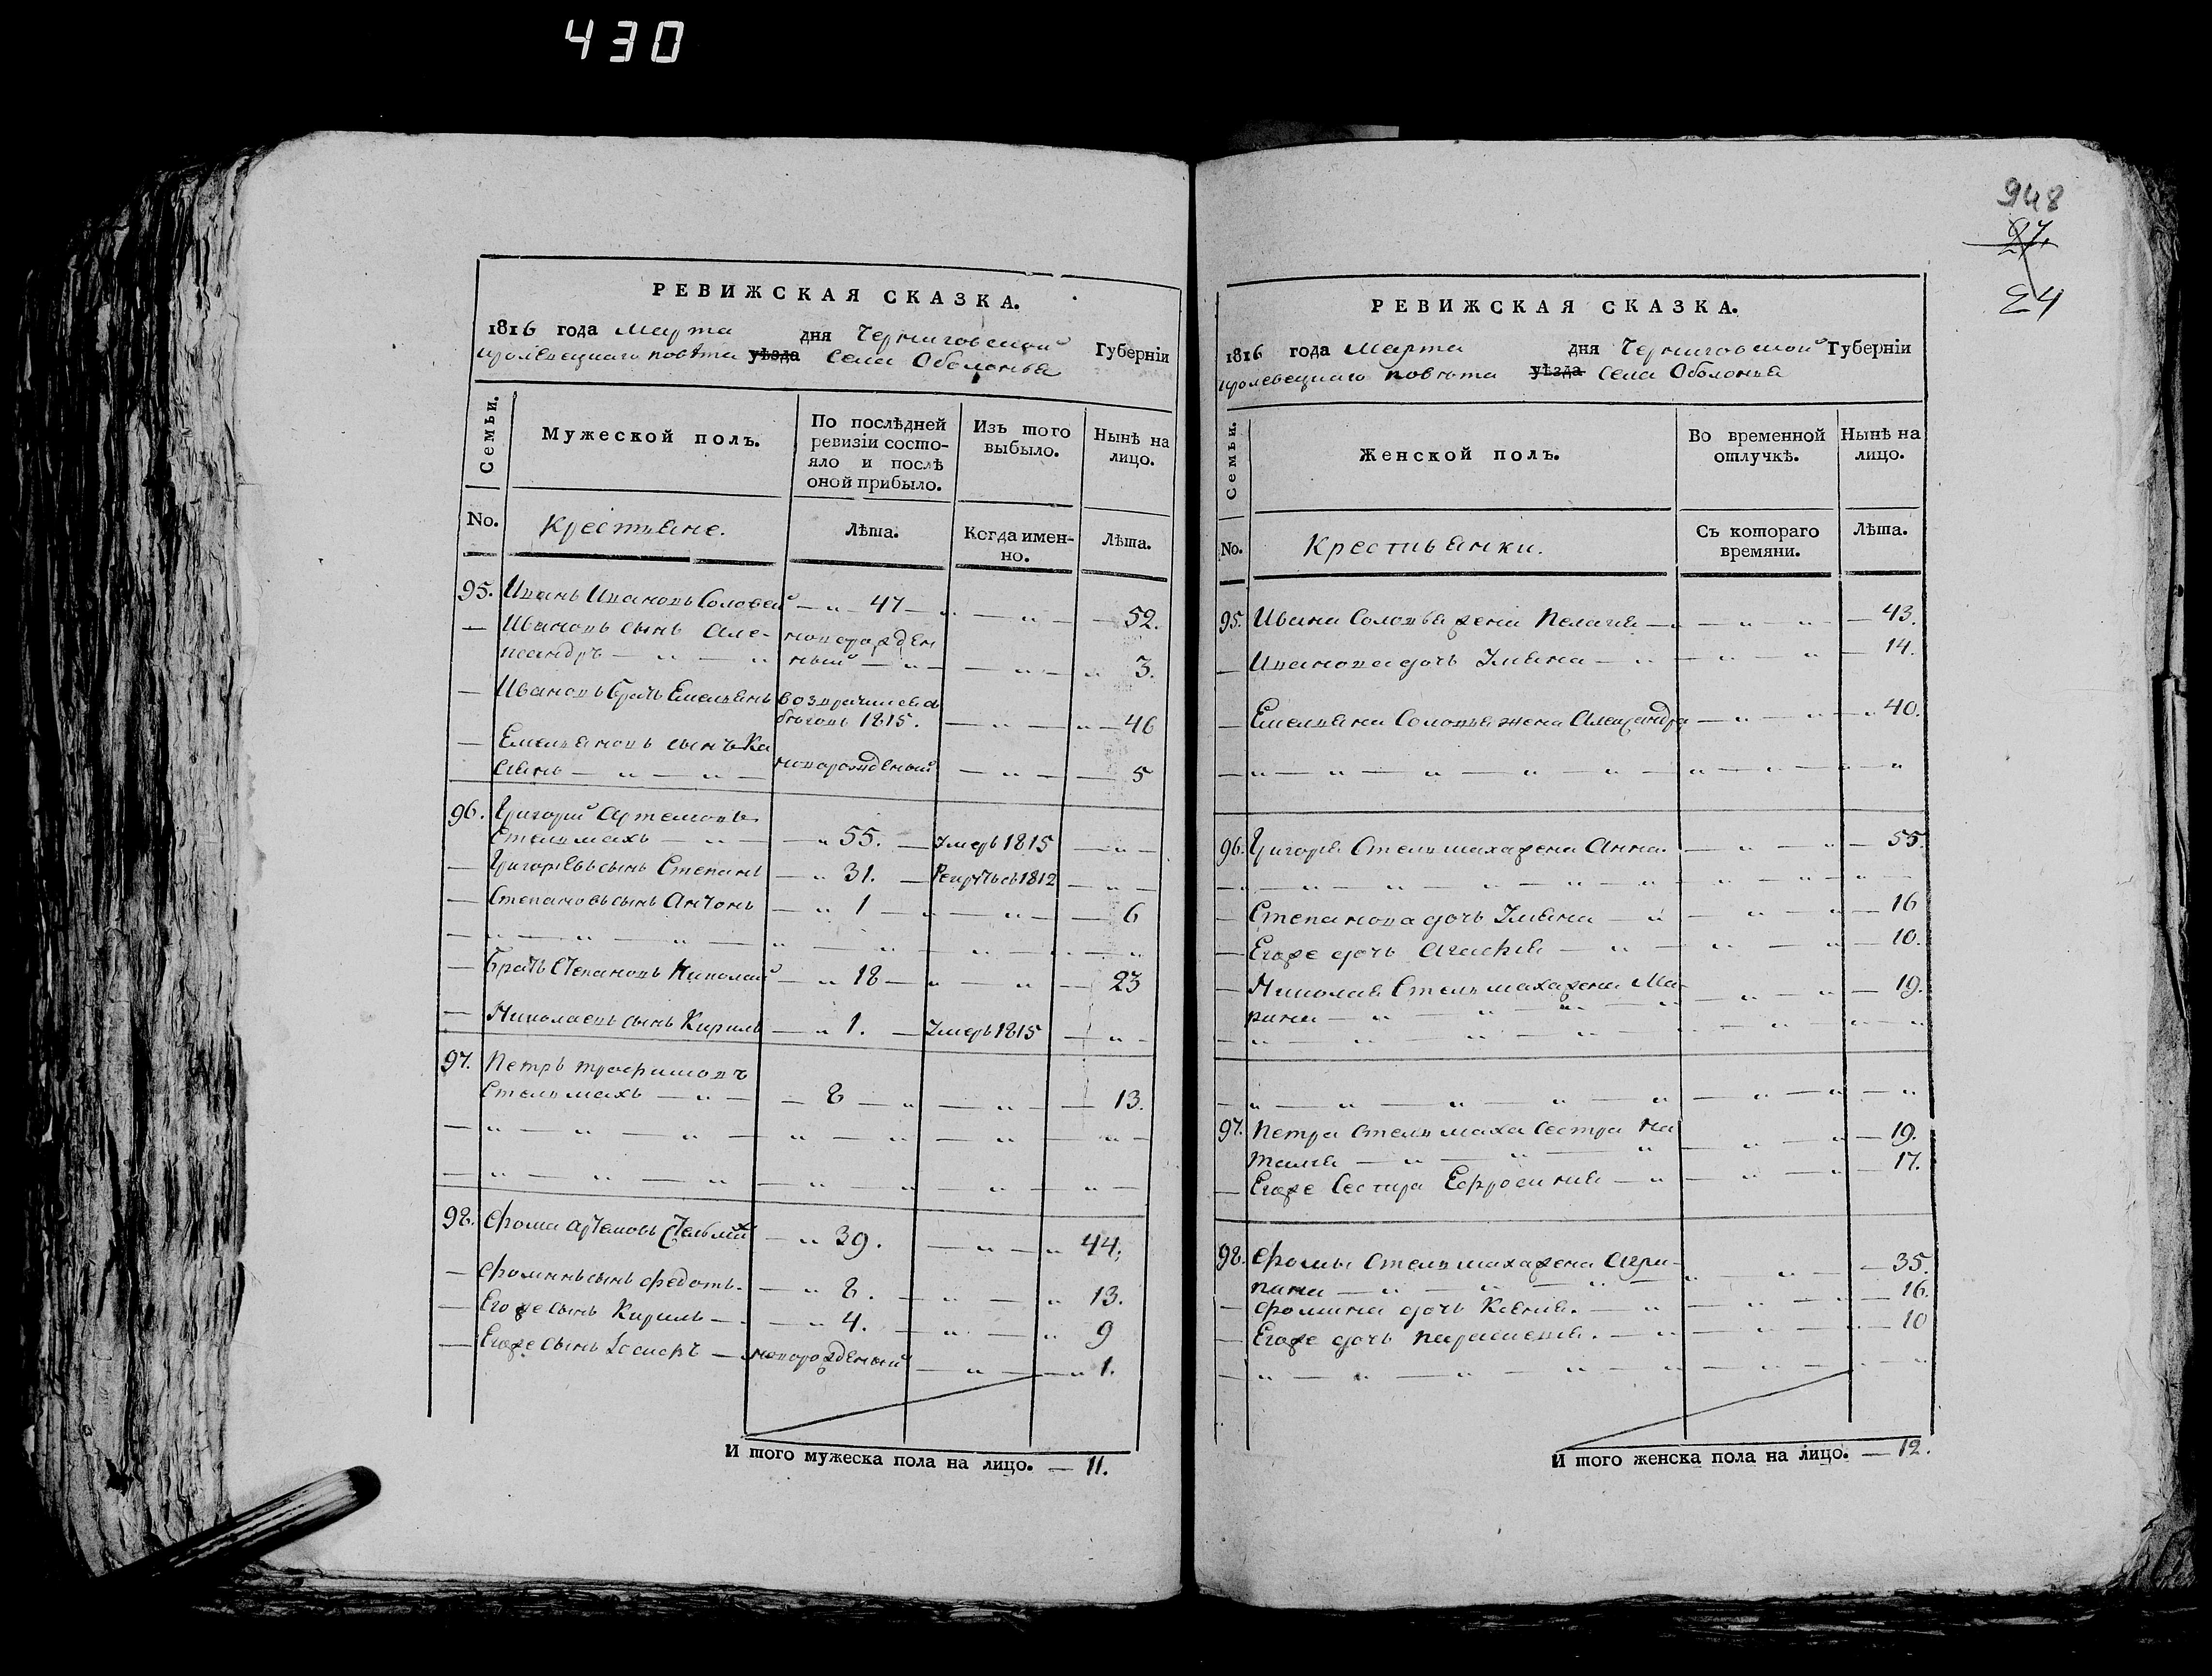 430
РЕВИЖСКАЯ СКАЗКА.
1816 года Марта дня Черниговской Губерніи
кролевецкаго повѣта уѣзда села Оболонья
Семьи.
Мужеской полъ.
По послѣдней ревизіи состо-
яло и послѣ
оной прибыло.
Изъ того
выбыло.
Нынѣ на
лицо.
No.
Крестьяне.
Лѣта.
Когда имен-
но.
Лѣта.
95. Иванъ Ивановъ Соловей — " — 47 — " — " — 52.
— Ивановъ сынъ Але-
ксандръ — " — " новорожден
ный — " — — " — " 3.
— Ивановъ братъ Емельянъ возвратился съ
бѣговъ 1815. — " — " — 46
— Емельяновъ сынъ Ка
сіянъ — " — " — новорожденый — " — — 5
96. Григорій Артемовъ
Стельмахъ — " — — " 55. — Умеръ 1815 — " —
— Григорьевъ сынъ Степанъ — " 31. — Рекрутъ съ 1812 — " —
— Степановъ сынъ Антонъ — " 1 — " — " — 6
— " — " — " — " — " — " — "
— Братъ Степановъ Николай — " 18 — " — " — 23
— Николаевъ сынъ Кирилъ — " 1. — Умеръ 1815 — " —
97. Петръ Трофимовъ
Стельмахъ — " — — 8 — " — " — — 13.
— " — " — " — " — " — " — " —
— " — " — " — " — " — " — " —
98. Фома Артемовъ Стельмах — " 39. — " — " 44.
— Фоминъ сынъ Федотъ. — " 8. — " — " 13.
— Егоже сынъ Кирилъ — " 4. — " — " 9
— Егоже сынъ Іосифъ — новорожденый — " — " 1.
И того мужеска пола на лицо. — 11.
948
27.
24
РЕВИЖСКАЯ СКАЗКА.
1816 года Марта дня Черниговской Губерніи
кролевецкаго повѣта уѣзда села Оболонья
Семьи.
Женской полъ.
Во временной
отлучкѣ.
Нынѣ на
лицо.
No.
Крестьянки.
Съ котораго
времяни.
Лѣта.
95. Ивана Соловья жена Пелагія — " — " — 43.
— Иванова дочь Уліяна — " — " — " — 14.
— Емельяна Соловья жена Александра — " — " 40.
— " — " — " — " — " — " — " — "
96. Григорія Стельмаха жена Анна. — " — " — 55.
— " — " — " — " — " — " — " —
— Степанова дочь Уліяна — " — " — " — 16
— Егоже дочь Агафія — " — " — " — 10.
— Николая Стельмаха жена Ма-
рина — " — " — " — " — " — 19.
— " — " — " — " — " — " — "
— " — " — " — " — " — " — "
97. Петра Стельмаха сестра На
талія — " — " — " — " — " — 19.
— Егоже Сестра Ефросинія — " — " — " — 17.
98. Фомы Стельмаха жена Агри-
пина — " — " — " — " — " — 35.
— Фомина дочь Ксенія. — " — " — " — 16.
— Егоже дочь Параскевія. — " — " — " — 10
— " — " — " — " — " — " — "
И того женска пола на лицо. — 12.